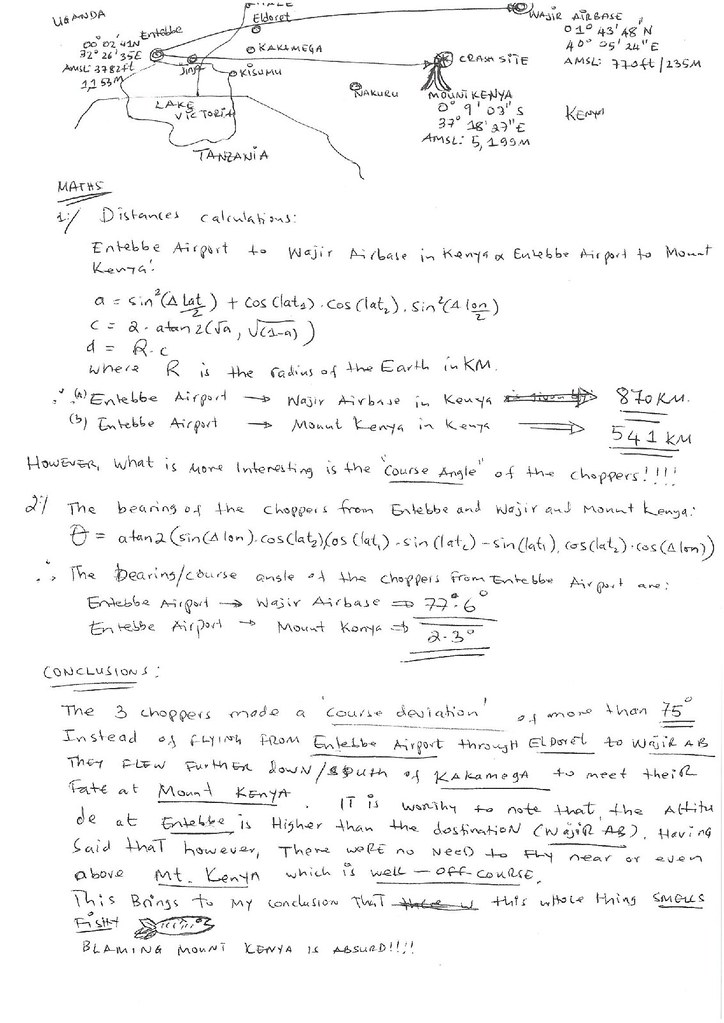 UGANDA
Eldoret
WAJIR AIRBASE
01° 43' 48" N
40° 05' 24" E
AMSL: 770ft/235M
Entebbe
00° 02' 41N
32° 26' 35E
AMSL 3782ft
1,153m
KAKAMEGA
JINJA
KISUMU
CRASH SITE
NAKURU
MOUNT KENYA
0° 9' 03" S
37° 18' 27" E
AMSL: 5,199M
KENYA
LAKE
VICTORIA
TANZANIA
MATHS
1:/ Distances calculations:
Entebbe Airport to Wajir Airbase in Kenya & Entebbe Airport to Mount
Kenya:
a = sin²(Δ Lat/2) + cos(lat₁) · cos(lat₂) · sin²(Δ lon/2)
c = 2 · atan2(√a, √(1-a))
d = R·c
where R is the radius of the Earth in KM.
∴ (a) Entebbe Airport → Wajir Airbase in Kenya ⇒ 870 KM.
(b) Entebbe Airport → Mount Kenya in Kenya ⇒ 541 KM
HOWEVER, what is more Interesting is the "course Angle" of the choppers!!!!
2:/ The bearing of the choppers from Entebbe and Wajir and Mount Kenya:
θ = atan2(sin(Δ lon)·cos(lat₂), cos(lat₁) - sin(lat₂) - sin(lat₁), cos(lat₂)·cos(Δ lon))
∴ The bearing/course angle of the choppers from Entebbe Airport are:
Entebbe Airport → Wajir Airbase ⇒ 77°.6°
Entebbe Airport → Mount Kenya ⇒ 2.3°
CONCLUSIONS:
The 3 choppers made a 'course deviation' of more than 75°
Instead of FLYING FROM Entebbe Airport through ELDORET to WAJIR AB
THEY FLEW FURTHER DOWN/SOUTH of KAKAMEGA to meet theiR
Fate at MOUNT KENYA. IT is worthy to note that, the Altitu
de at Entebbe is Higher than the dostination (WAJIR AB). Having
Said that however, There WERE no NEED to Fly near or even
above Mt. Kenya which is well-OFF-COURSE.
This Brings to My conclusion that this whole thing SMELLS
FISHY
BLAMING MOUNT KENYA IS ABSURD!!!!